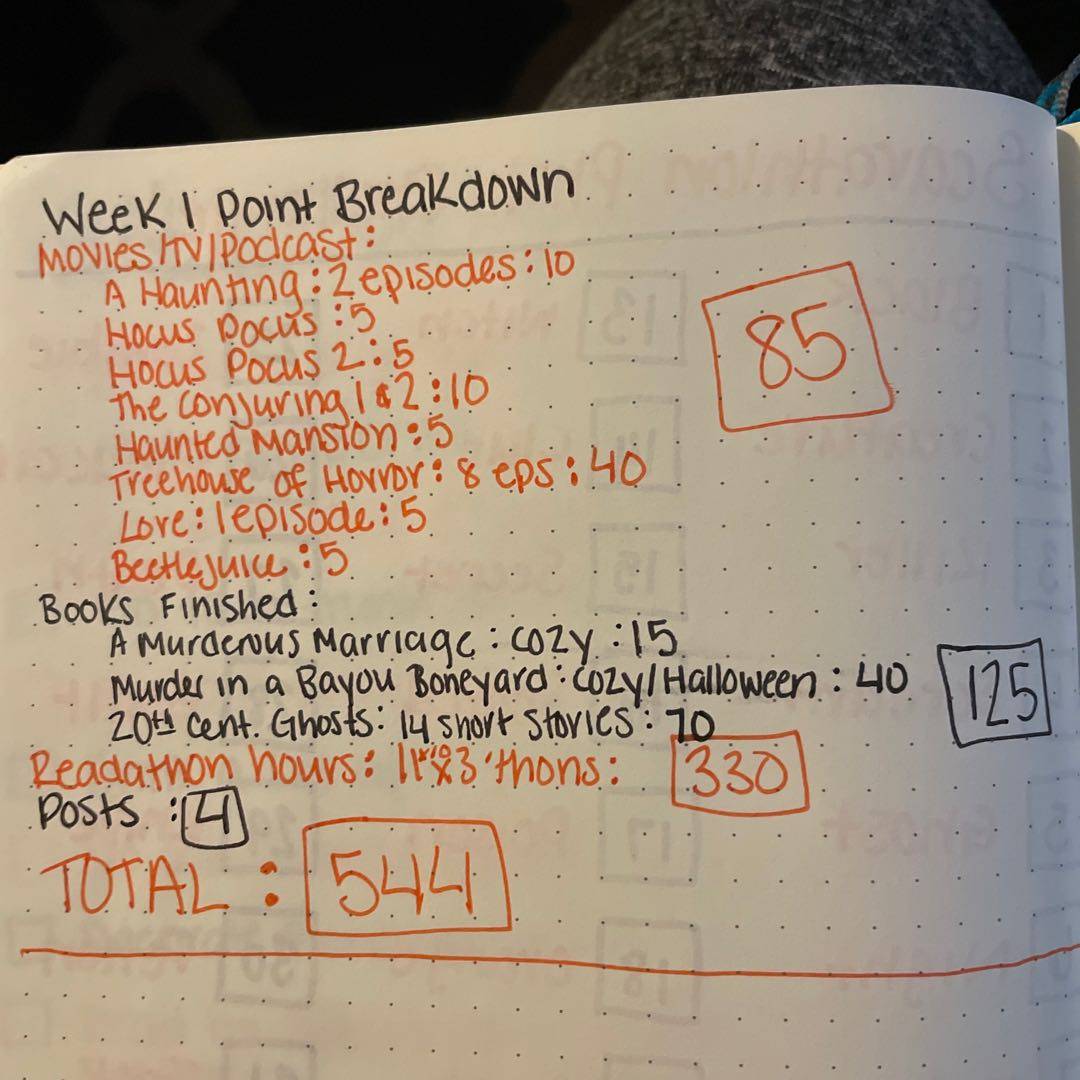 Week 1 Point Breakdown
Movies/TV/Podcast:
A Haunting: 2 episodes: 10
Hocus Pocus: 5
Hocus Pocus 2: 5
The Conjuring 1 & 2: 10
Haunted Mansion: 5
Treehouse of Horror: 8 eps: 40
Love: 1 episode: 5
Beetlejuice: 5
85
Books Finished:
A Murderous Marriage: cozy: 15
Murder in a Bayou Boneyard: cozy/Halloween: 40
20th Cent. Ghosts: 14 short stories: 70
125
Readathon hours: 11x10x3 'thons: 330
Posts: 4
TOTAL: 544